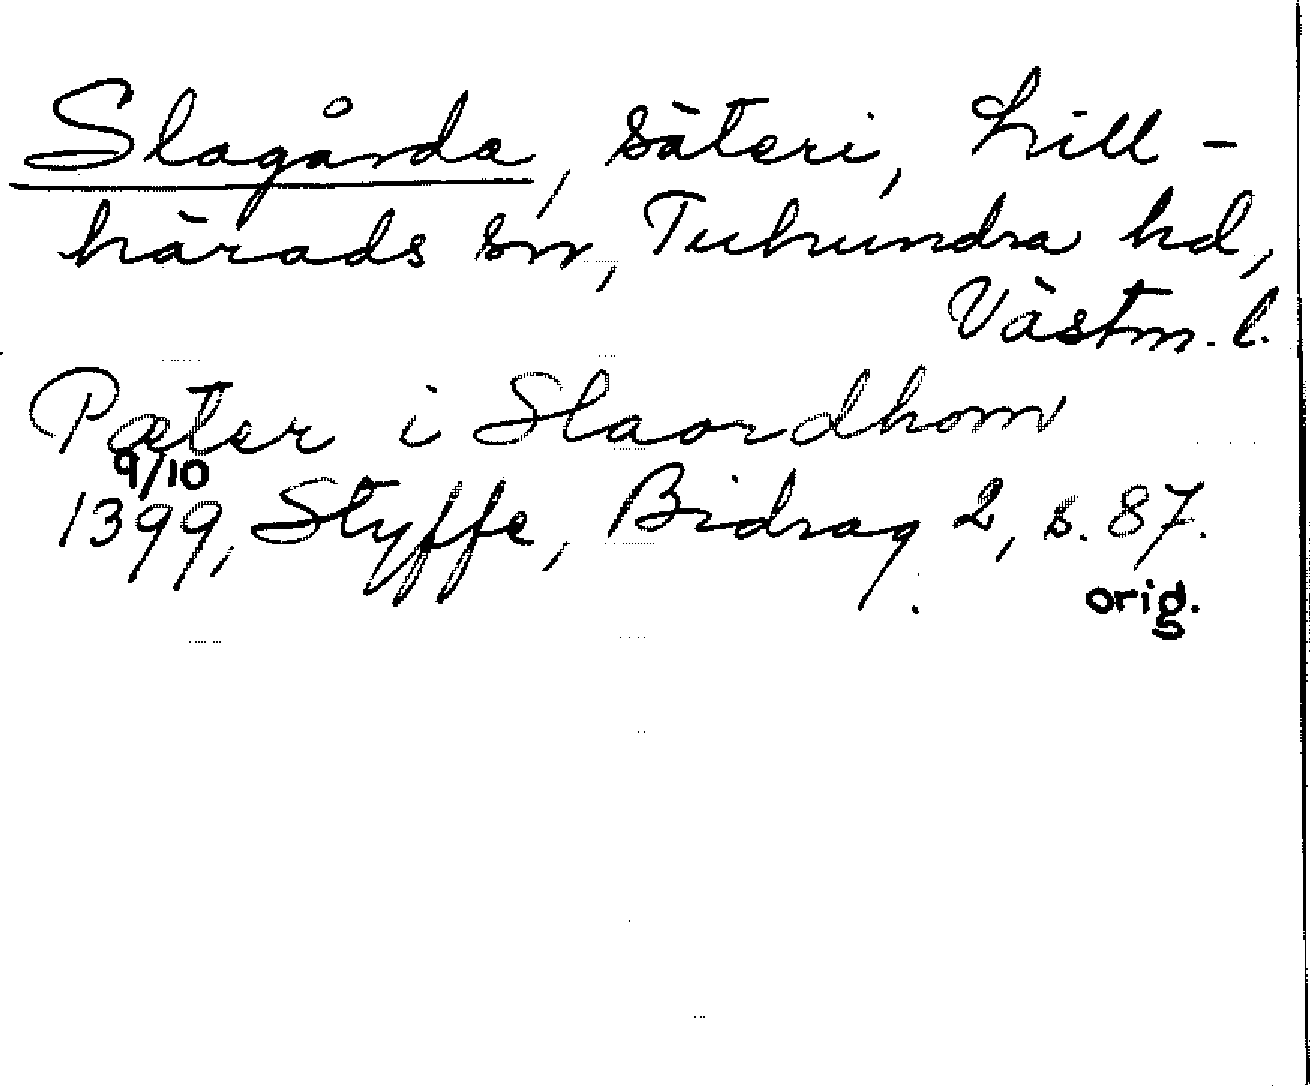 Slagårda, säteri, Lill-
härads sn, Tuhundra hd,
Västm. l.
Pæter i Slaordhom
9/10
1399, Styffe, Bidrag 2, s. 87.
orig.